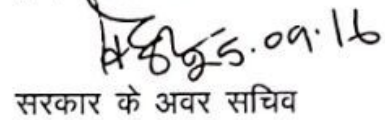 5.09.16
सरकार के अवर सचिव